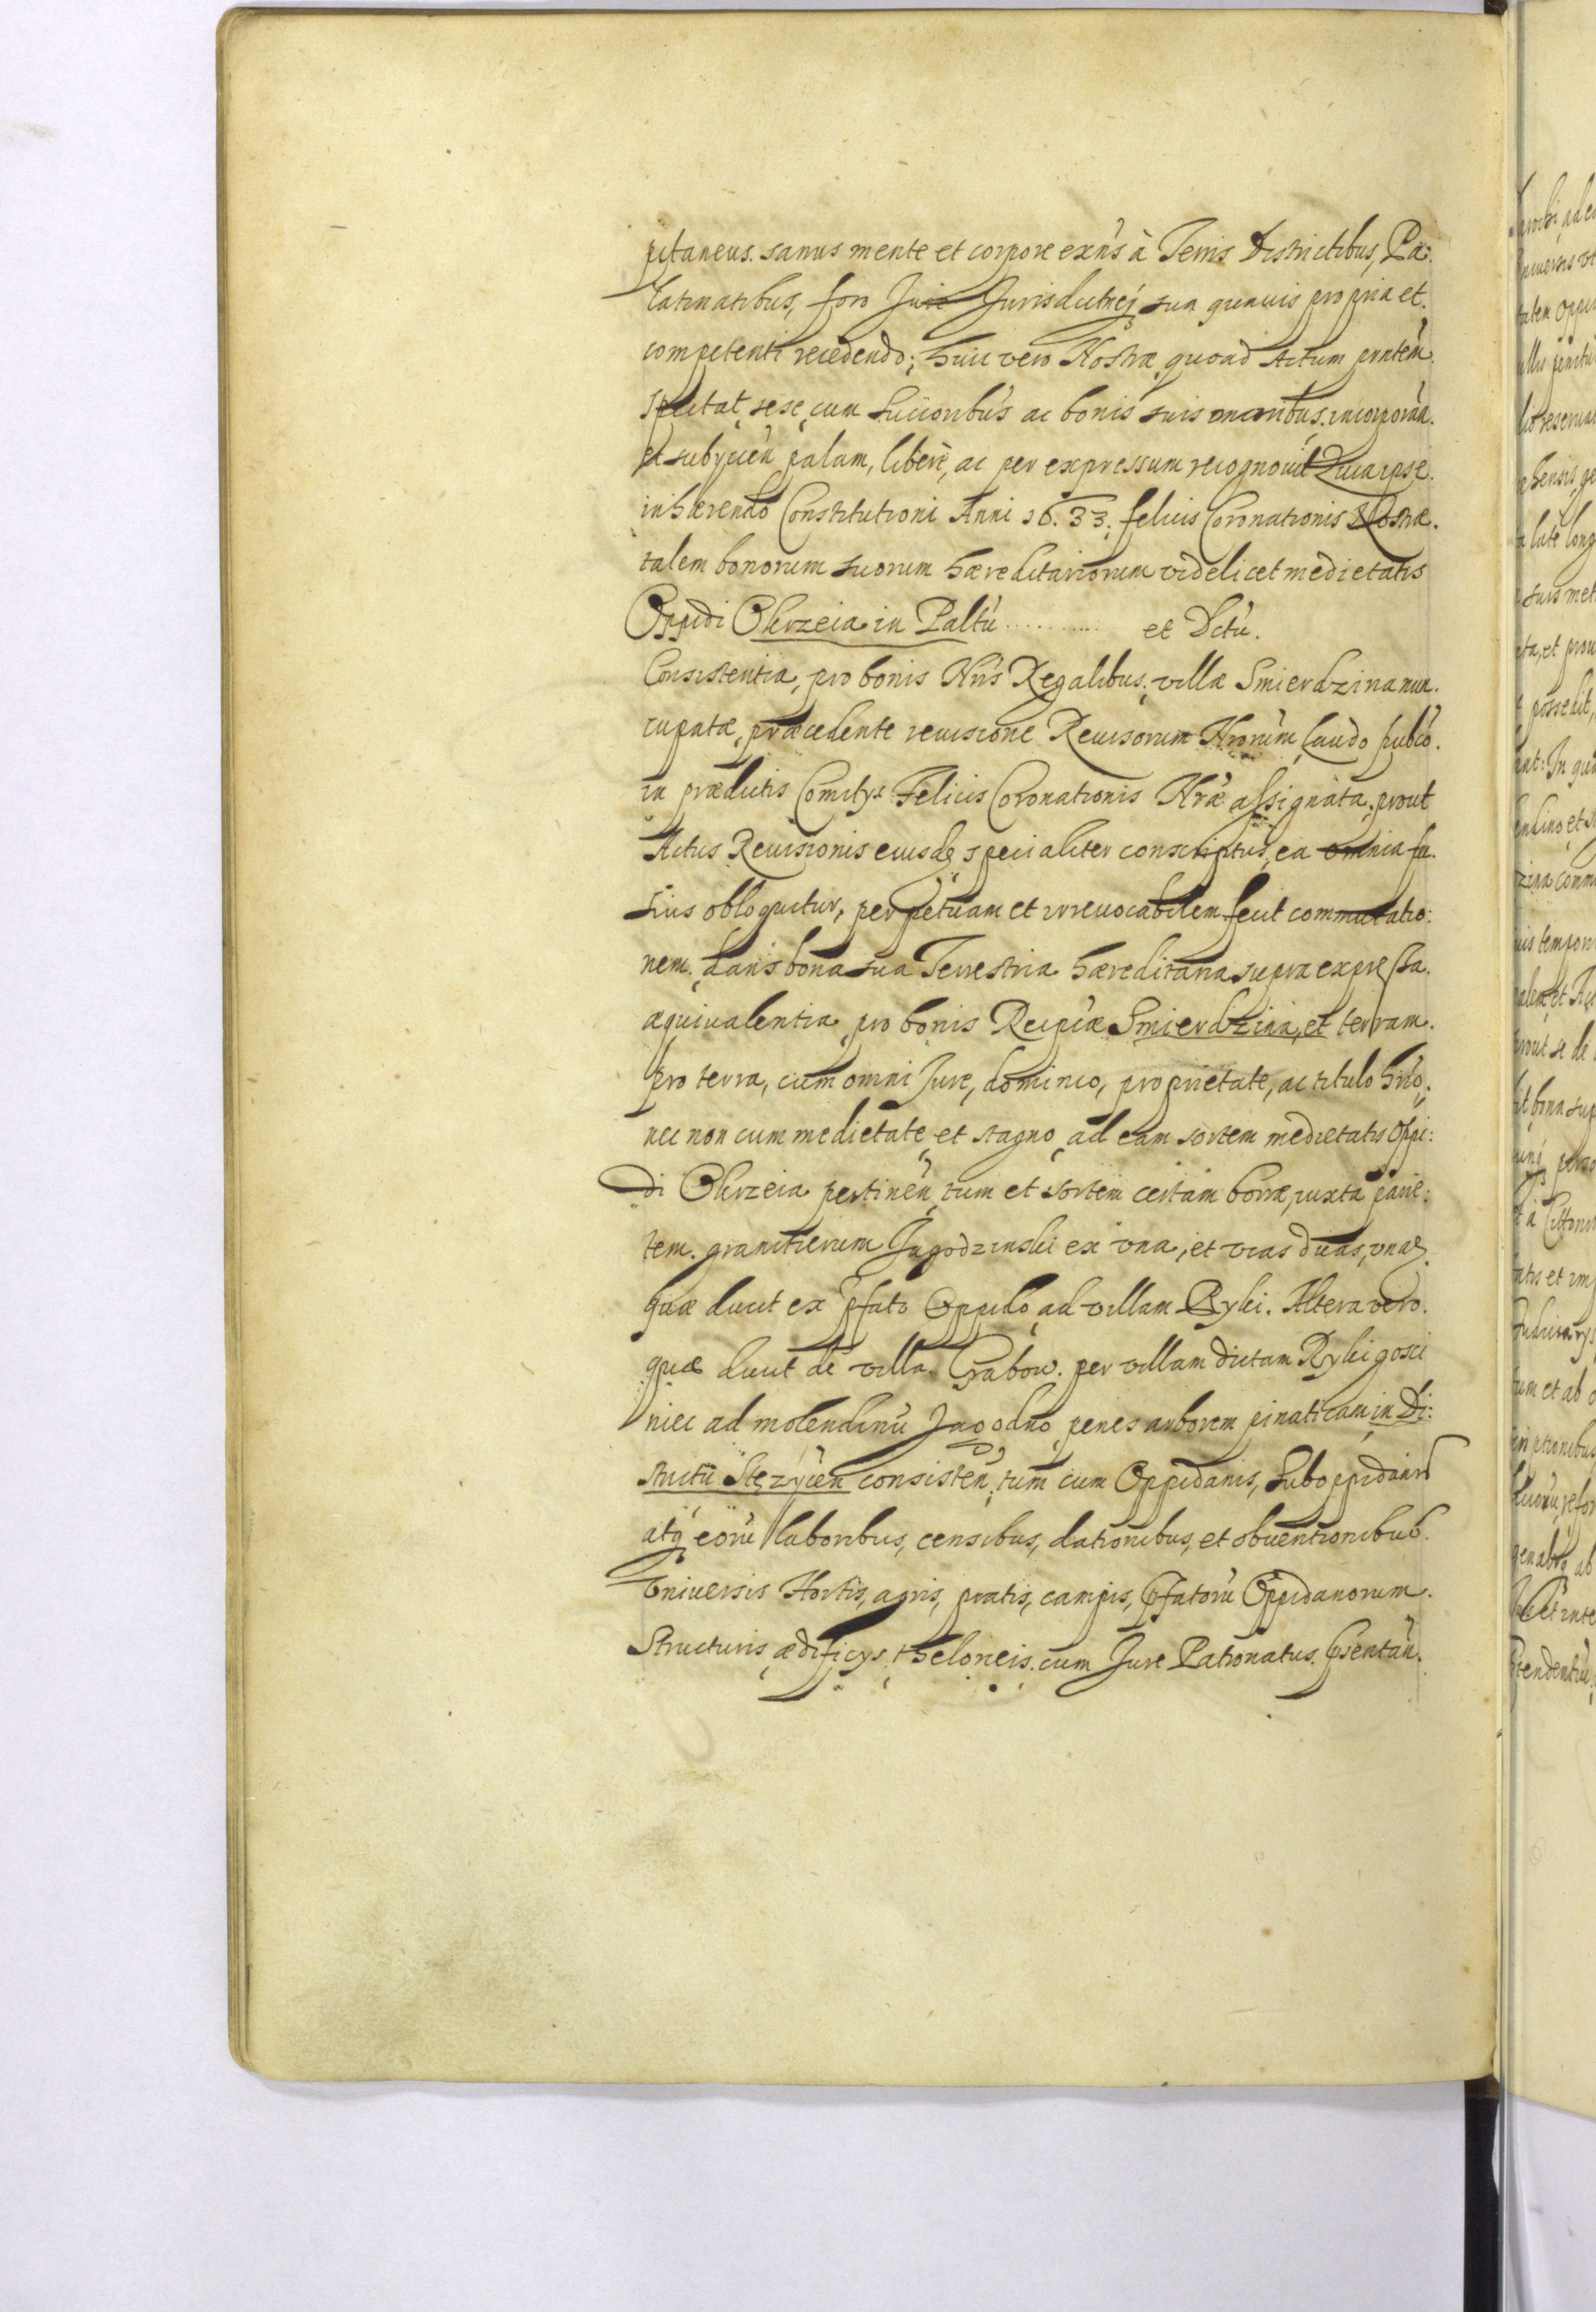 pitaneus. sanus mente et corpore exñs à Terris Districtibus, Pa:
latinatibus, foro Jure Jurisdictneq sua quavis propria et.
competenti recedendo; huic vero Nostræ quoad Actum pñtem
spectat, sese cum Succoribus ac bonis suis omnibus. incorporań.
et subycień palam, liberè, ac per expressum recognovit Quia ipse.
inhærendo Constitutioni Anni 16.33. felicis Coronationis Nostræ.
talem bonorum suorum hæreditariorum videlicet medietatis
Oppidi Okrzeia in Paltũ .......... et Dctũ.
Consistentia, pro bonis Nris Regalibus, villæ Smierdzina nun.
cupatæ, præcedente revisione Revisorum Nrorum, laudo publco.
in prædictis Comitys Felicis Coronationis Nræ assignata, prout
Actus Revisionis eiusdę specialiter conscriptus, ea omnia fu.
sius obloquitur, perpetuam et irrevocabilem fecit commutatio:
nem. dans bona sua Terrestria hæreditaria supra expressa.
æquivalentia, pro bonis Reipcæ Smierdzina, et terram.
pro terra, cum omni Jure, dominio, proprietate, ac titulo hrio,
nec non cum medietate, et stagno, ad eam sortem medietatis Oppi:
di Okrzeia pertineń, tum et sortem certam borræ, iuxta parie:
tem. granitierum Jagodzinski ex vna, et vias duas, vnaę
quæ ducit ex pfato Oppido ad villam Ryki. Altera vero.
quæ ducit de villa Grabow. per villam dictam Ryki gosci
niec ad molendinũ Jagodno penes arborem pinaticam in Di:
strictũ Stęzycen consisteń, tum cum Oppidanis, Suboppidanis
atq eorũ laboribus, censibus, dationibus, et obuentionibus.
Vniuersis Hortis, agris, pratis, campis, pfatorũ Oppidanorum.
Structuris, ædificys, theloneis. cum Jure Patronatus. psentań.